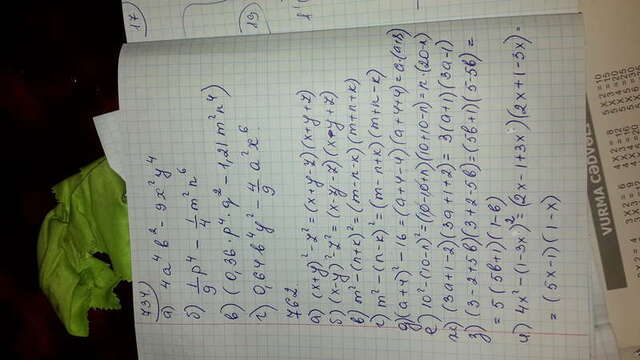 17)
19)
734)
а) 4a⁴b² - 9x²y⁴
б) 1/9 p⁴ - 1/4 m²n⁶
в) (0,36·p⁴·q² - 1,21m²n⁴)
г) 0,64b⁴y² - 4/9 a²x⁶
762
а) (x+y)²-z² = (x+y-z)(x+y+z)
б) (x-y)²-z² = (x-y-z)(x-y+z)
в) m²-(n+k)² = (m-n-k)(m+n+k)
г) m²-(n-k)² = (m-n+k)(m+n-k)
д) (a+4)²-16 = (a+4-4)(a+4+4) = a·(a+8)
е) 10²-(10-n)² = (10-10+n)(10+10-n) = n·(20-n)
ж) (3a+1-2)(3a+1+2) = 3(a+1)(3a-1)
з) (3-2+5b)(3+2-5b) = (5b+1)(5-5b) =
= 5(5b+1)(1-b)
и) 4x²-(1-3x)² = (2x-1+3x)(2x+1-3x) =
= (5x-1)(1-x)
VURMA CƏDVƏLİ
4 X 2 = 8
4 X 3 = 12
4 X 4 = 16
5 X 2 = 10
5 X 3 = 15
5 X 4 = 20